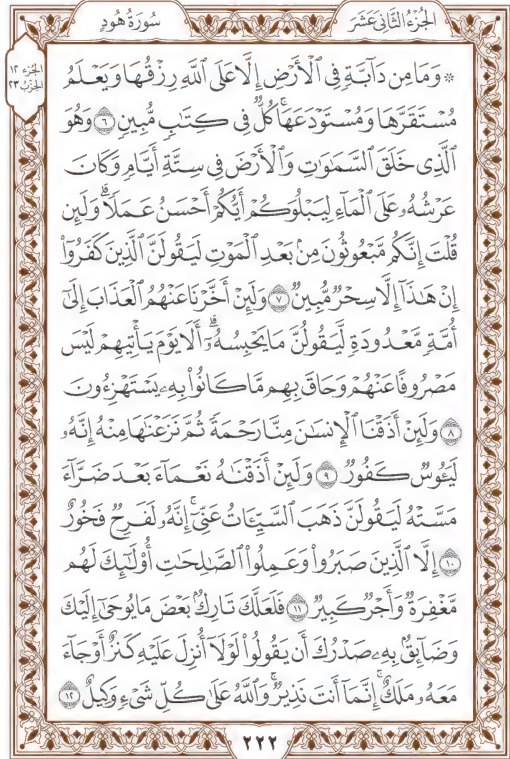 الجزء الثاني عشر
سورة هود
الجزء ١٢
الحزب ٢٣
۞ وَمَا مِن دَآبَّةٍ فِي ٱلْأَرْضِ إِلَّا عَلَى ٱللَّهِ رِزْقُهَا وَيَعْلَمُ
مُسْتَقَرَّهَا وَمُسْتَوْدَعَهَاۚ كُلٌّ فِي كِتَٰبٍ مُّبِينٍ ٦ وَهُوَ
ٱلَّذِي خَلَقَ ٱلسَّمَٰوَٰتِ وَٱلْأَرْضَ فِي سِتَّةِ أَيَّامٍ وَكَانَ
عَرْشُهُۥ عَلَى ٱلْمَآءِ لِيَبْلُوَكُمْ أَيُّكُمْ أَحْسَنُ عَمَلًاۗ وَلَئِن
قُلْتَ إِنَّكُم مَّبْعُوثُونَ مِنۢ بَعْدِ ٱلْمَوْتِ لَيَقُولَنَّ ٱلَّذِينَ كَفَرُوٓا۟
إِنْ هَٰذَآ إِلَّا سِحْرٌ مُّبِينٌ ٧ وَلَئِنْ أَخَّرْنَا عَنْهُمُ ٱلْعَذَابَ إِلَىٰٓ
أُمَّةٍ مَّعْدُودَةٍ لَّيَقُولُنَّ مَا يَحْبِسُهُۥٓۗ أَلَا يَوْمَ يَأْتِيهِمْ لَيْسَ
مَصْرُوفًا عَنْهُمْ وَحَاقَ بِهِم مَّا كَانُوا۟ بِهِۦ يَسْتَهْزِءُونَ
٨ وَلَئِنْ أَذَقْنَا ٱلْإِنسَٰنَ مِنَّا رَحْمَةً ثُمَّ نَزَعْنَٰهَا مِنْهُ إِنَّهُۥ
لَيَـُٔوسٌ كَفُورٌ ٩ وَلَئِنْ أَذَقْنَٰهُ نَعْمَآءَ بَعْدَ ضَرَّآءَ
مَسَّتْهُ لَيَقُولَنَّ ذَهَبَ ٱلسَّيِّـَٔاتُ عَنِّيٓۚ إِنَّهُۥ لَفَرِحٌ فَخُورٌ
١٠ إِلَّا ٱلَّذِينَ صَبَرُوا۟ وَعَمِلُوا۟ ٱلصَّٰلِحَٰتِ أُو۟لَٰٓئِكَ لَهُم
مَّغْفِرَةٌ وَأَجْرٌ كَبِيرٌ ١١ فَلَعَلَّكَ تَارِكٌۢ بَعْضَ مَا يُوحَىٰٓ إِلَيْكَ
وَضَآئِقٌۢ بِهِۦ صَدْرُكَ أَن يَقُولُوا۟ لَوْلَآ أُنزِلَ عَلَيْهِ كَنزٌ أَوْ جَآءَ
مَعَهُۥ مَلَكٌۚ إِنَّمَآ أَنتَ نَذِيرٌۚ وَٱللَّهُ عَلَىٰ كُلِّ شَيْءٍ وَكِيلٌ ١٢
٢٢٢